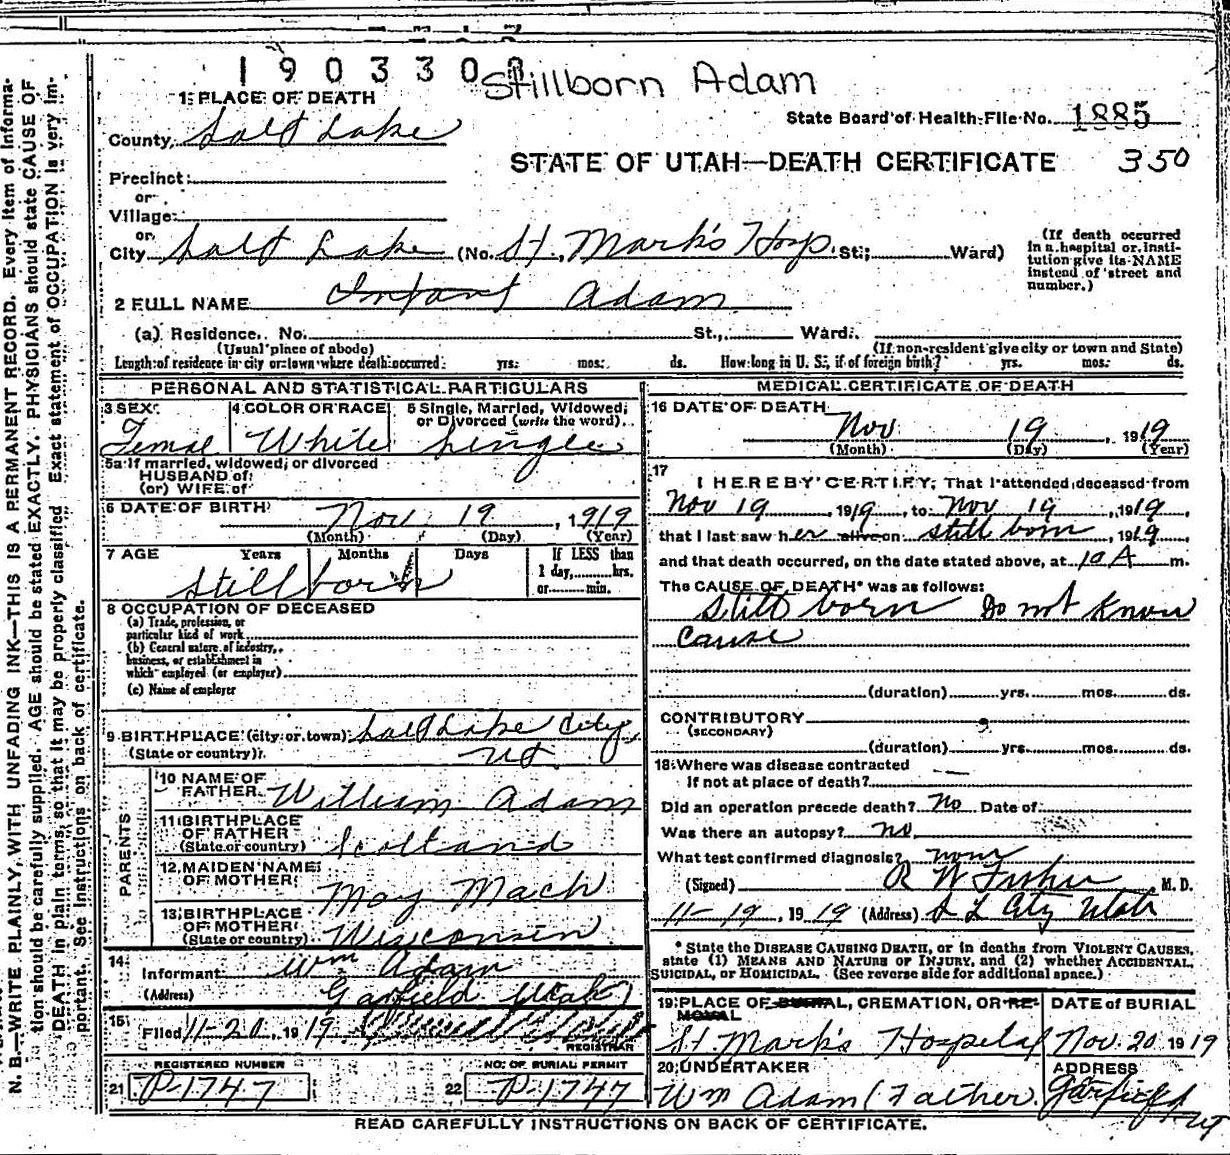 1903300
Stillborn Adam
1 PLACE OF DEATH
County, Salt Lake
State Board of Health-File No. 1885
STATE OF UTAH—DEATH CERTIFICATE 350
Precinct
or
Village
or
City Salt Lake (No. St. Mark's Hosp. St; Ward)
(If death occurred in a hospital or institution give its NAME instead of street and number.)
2 FULL NAME Infant Adam
(a) Residence. No. St., Ward.
(Usual place of abode) (If non-resident give city or town and State)
Length of residence in city or town where death occurred yrs. mos. ds. How long in U. S., if of foreign birth? yrs. mos. ds.
PERSONAL AND STATISTICAL PARTICULARS
3 SEX Female
4 COLOR OR RACE White
5 Single, Married, Widowed, or Divorced (write the word) Single
5a If married, widowed, or divorced
HUSBAND of
(or) WIFE of
6 DATE OF BIRTH Nov. 19, 1919
(Month) (Day) (Year)
7 AGE Years Months Days If LESS than 1 day, hrs. or min.
Still born
8 OCCUPATION OF DECEASED
(a) Trade, profession, or particular kind of work
(b) General nature of industry, business, or establishment in which employed (or employer)
(c) Name of employer
9 BIRTHPLACE (city or town) Salt Lake City,
(State or country) Ut.
PARENTS
10 NAME OF FATHER William Adam
11 BIRTHPLACE OF FATHER (State or country) Scotland
12 MAIDEN NAME OF MOTHER May Mach
13 BIRTHPLACE OF MOTHER (State or country) Wisconsin
14 Informant Wm Adam
(Address) Garfield Utah
15 Filed 11-20, 1919
REGISTRAR
REGISTERED NUMBER
21 P-1747
NO. OF BURIAL PERMIT
22 P-1747
MEDICAL CERTIFICATE OF DEATH
16 DATE OF DEATH
Nov 19, 1919
(Month) (Day) (Year)
17 I HEREBY CERTIFY, That I attended deceased from
Nov 19, 1919, to Nov 19, 1919,
that I last saw her alive on still born, 1919,
and that death occurred, on the date stated above, at 10 A m.
The CAUSE OF DEATH* was as follows:
Still born Do not know
cause
(duration) yrs. mos. ds.
CONTRIBUTORY
(SECONDARY)
(duration) yrs. mos. ds.
18 Where was disease contracted
If not at place of death?
Did an operation precede death? No Date of
Was there an autopsy? no
What test confirmed diagnosis? none
(Signed) R W Fisher M. D.
11-19, 1919 (Address) S L City Utah
* State the DISEASE CAUSING DEATH, or in deaths from VIOLENT CAUSES, state (1) MEANS AND NATURE OF INJURY, and (2) whether ACCIDENTAL, SUICIDAL, or HOMICIDAL. (See reverse side for additional space.)
19 PLACE OF BURIAL, CREMATION, OR REMOVAL
St Mark's Hospital
DATE of BURIAL
Nov. 20 1919
20 UNDERTAKER
Wm Adam (Father.
ADDRESS
Garfield Ut
READ CAREFULLY INSTRUCTIONS ON BACK OF CERTIFICATE.
N. B.—WRITE PLAINLY, WITH UNFADING INK—THIS IS A PERMANENT RECORD. Every item of information should be carefully supplied. AGE should be stated EXACTLY. PHYSICIANS should state CAUSE OF DEATH in plain terms, so that it may be properly classified. Exact statement of OCCUPATION is very important. See instructions on back of certificate.